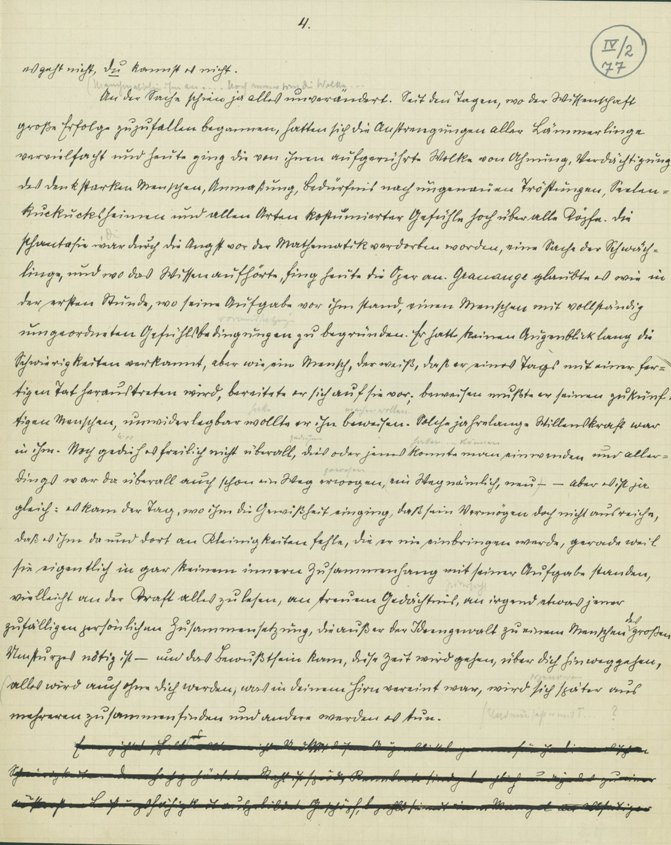 4.
IV/2
77
es geht nicht, du kannst es nicht.
An der Sache schien ja alles unverändert. Seit den Tagen, wo der Wissenschaft
große Erfolge zuzufallen begannen, hatten sich die Anstrengungen aller Lämmerlinge
vervielfacht und heute ging die von ihnen aufgerührte Wolke von Ahnung, Verdächtigung
des denkstarken Menschen, Anmaßung, Bedürfnis nach ungenauen Tröstungen, Seelen-
kuckucksheimen und allen Arten kostümierter Gefühle hoch über alle Köpfe. Die
Phantasie war durch die Angst vor der Mathematik verdorben worden, eine Sache der Schwäch-
linge, und wo das Wissen aufhörte, fing heute die Oper an. Granauge glaubte es wie in
der ersten Stunde, wo seine Aufgabe vor ihm stand, einen Menschen mit vollständig
umgeordneten Gefühlsbedingungen zu begründen. Er hatte keinen Augenblick lang die
Schwierigkeiten verkannt, aber wie ein Mensch, der weiß, daß er eines Tags mit einer fer-
tigen Tat heraustreten wird, bereitete er sich auf sie vor; beweisen mußte er seinen zukünf-
tigen Menschen, unwiderlegbar wollte er ihn beweisen. Solche jahrelange Willenskraft war
in ihm. Noch gedieh es freilich nicht überall, dies oder jenes konnte man einwenden und aller-
dings war da überall auch schon ein Weg erwogen, ein Weg nämlich, neu – aber es ist ja
gleich: es kam der Tag, wo ihm die Gewißheit einging, daß sein Vermögen doch nicht ausreiche,
daß es ihm da und dort an Kleinigkeiten fehle, die er nie einbringen werde, gerade weil
sie eigentlich in gar keinem innern Zusammenhang mit seiner Aufgabe standen,
vielleicht an der Kraft alles zu lesen, an treuem Gedächtnis, an irgend etwas jener
zufälligen persönlichen Zusammensetzung, die außer der Ideengewalt zu einem Menschen des großen
Umsturzes nötig ist – und das Bewußtsein kam, diese Zeit wird gehen, über dich hinweggehen,
alles wird auch ohne dich werden, was in deinem Hirn vereint war, wird sich später aus
mehreren zusammenfinden und andere werden es tun.